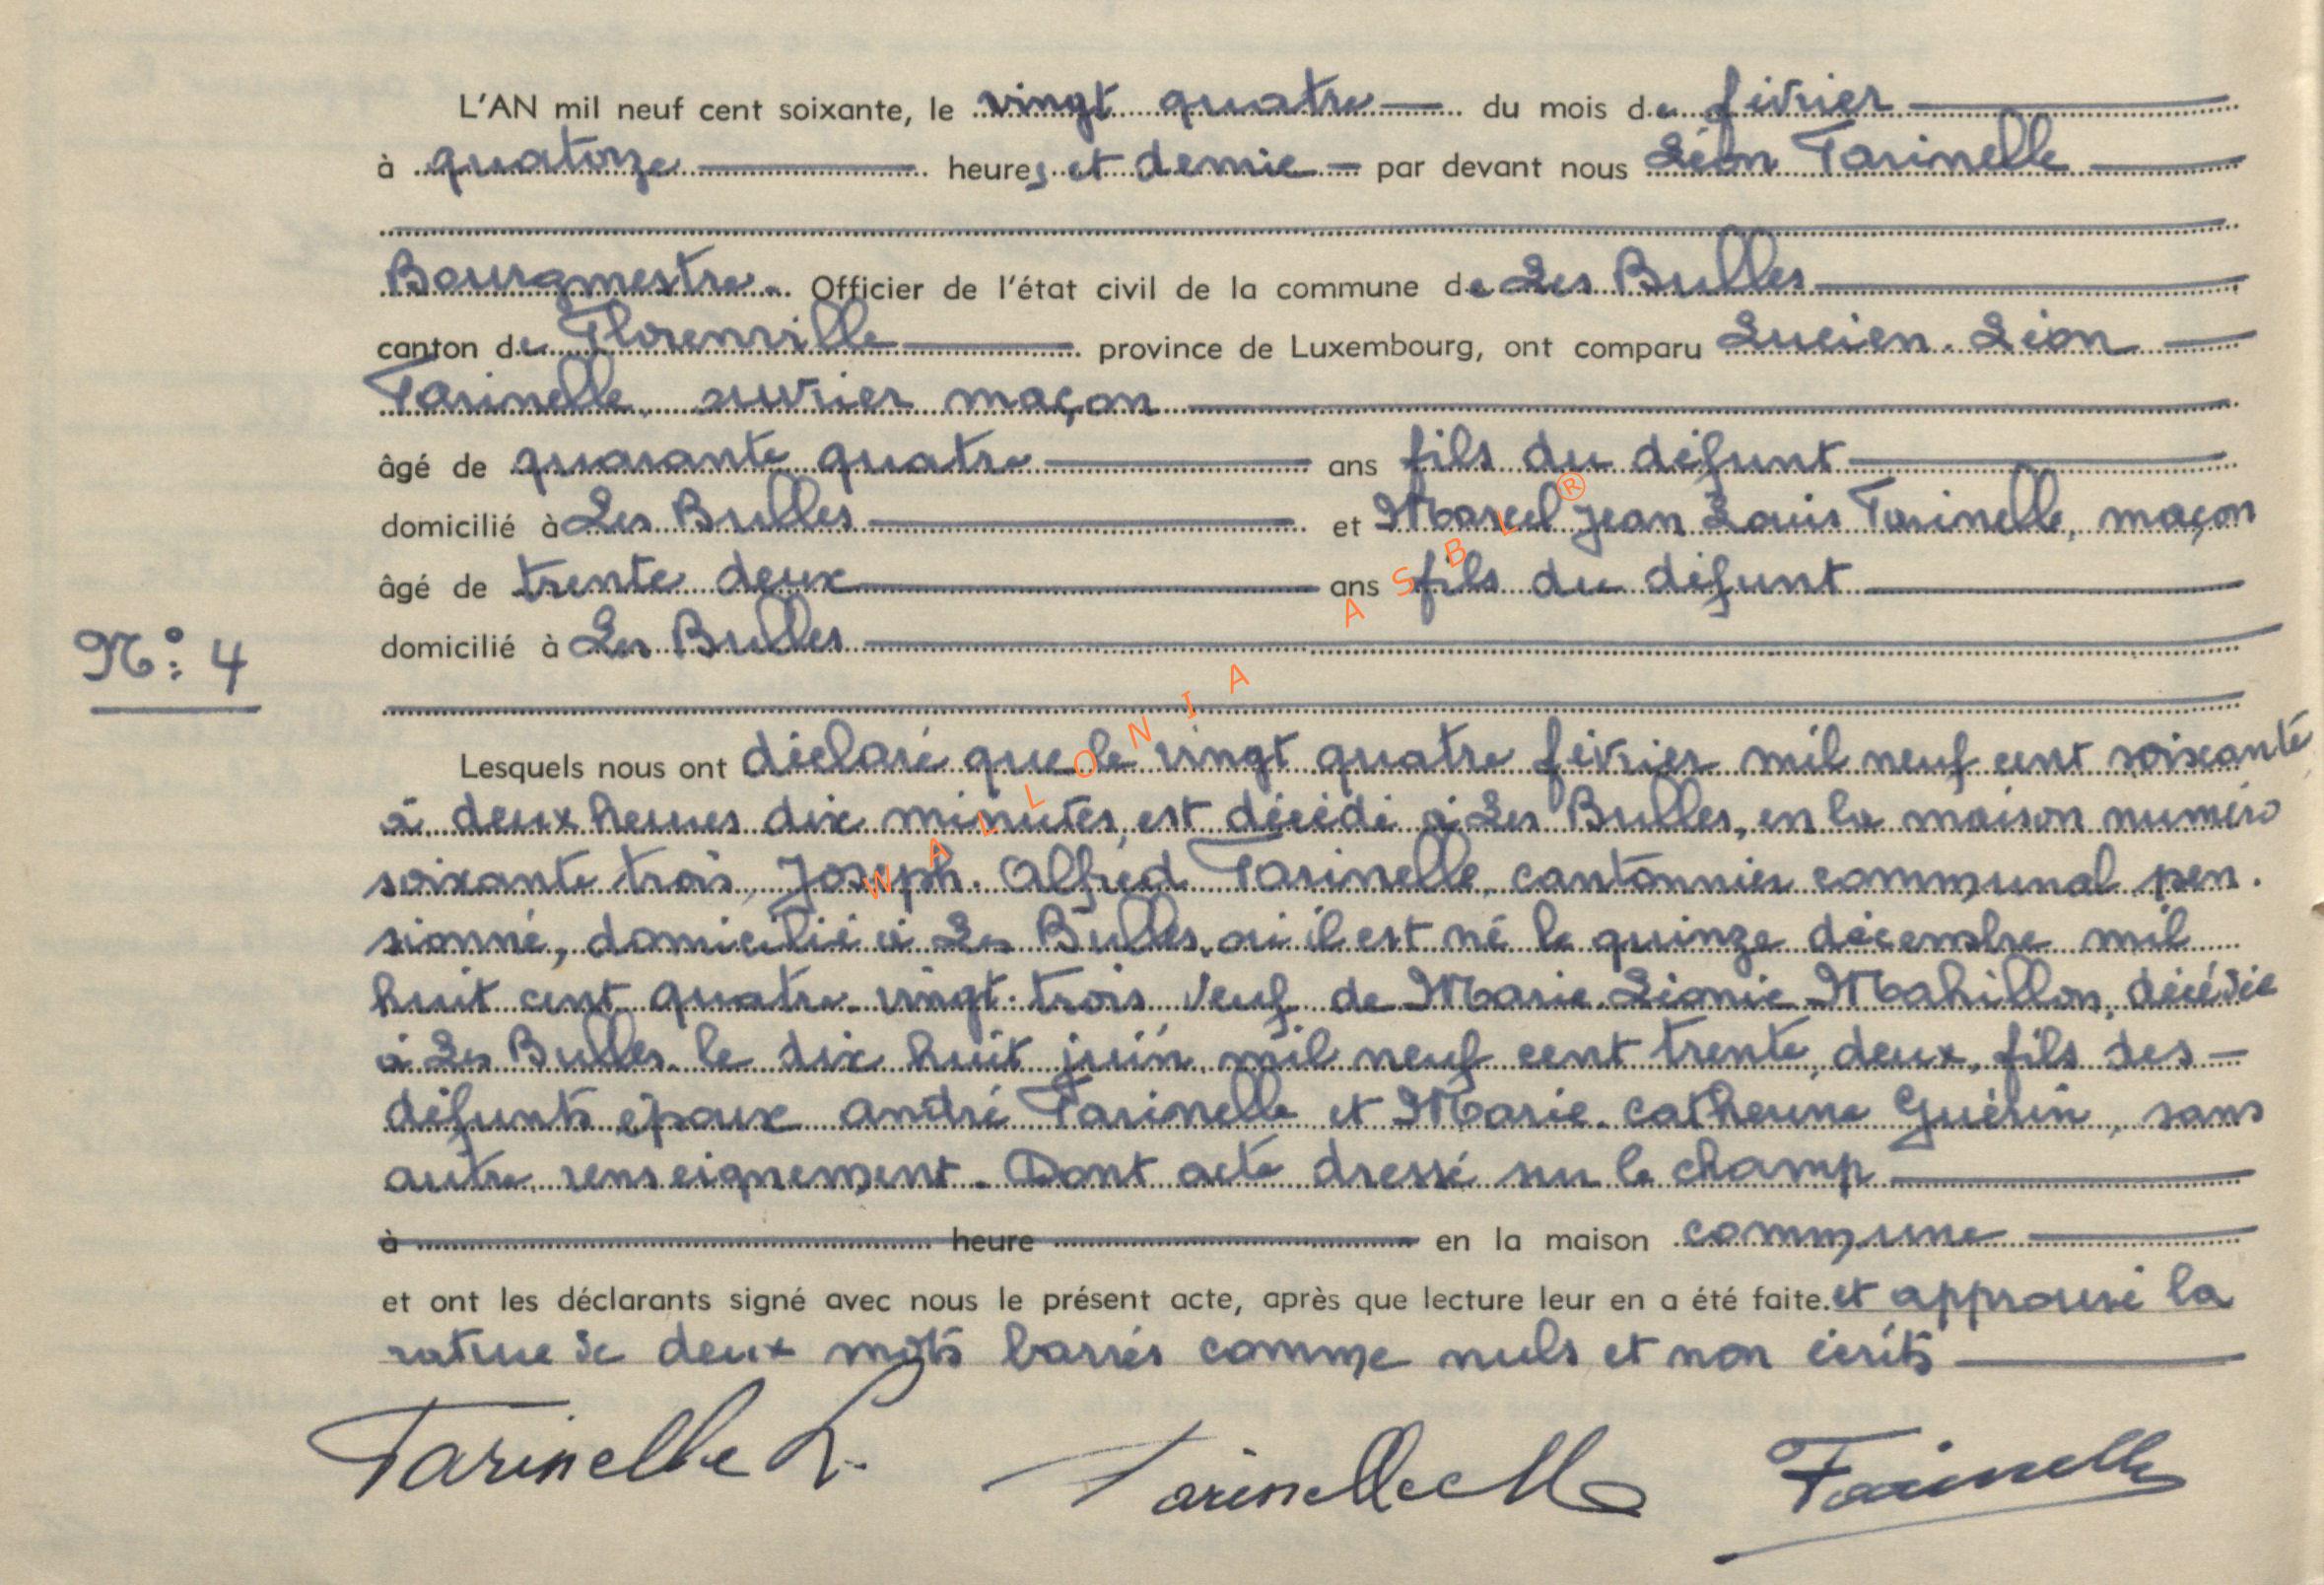 L'AN mil neuf cent soixante, le vingt quatre du mois de février
à quatorze heures et demie par devant nous Léon Tarinelle
Bourgmestre. Officier de l'état civil de la commune de Les Bulles
canton de Florenville province de Luxembourg, ont comparu Lucien. Léon
Tarinelle, ouvrier maçon
âgé de quarante quatre ans fils du défunt
domicilié à Les Bulles et Marcel Jean Louis Tarinelle, maçon
âgé de trente deux ans fils du défunt
N°: 4
domicilié à Les Bulles
Lesquels nous ont déclaré que le vingt quatre février mil neuf cent soixante
à deux heures dix minutes, est décédé à Les Bulles, en la maison numéro
soixante trois, Joseph. Alfred Tarinelle, cantonnier communal pen.
sionné, domicilié à Les Bulles, où il est né le quinze décembre mil
huit cent quatre-vingt-trois veuf de Marie Léonie Mahillon, décédée
à Les Bulles. le dix huit juin, mil neuf cent trente, deux, fils des
défunts époux André Tarinelle et Marie. Catherine Guérin, sans
autre renseignement. Dont acte dressé sur le champ
à heure en la maison commune
et ont les déclarants signé avec nous le présent acte, après que lecture leur en a été faite. et approuvé la
rature de deux mots barrés comme nuls et non écrits
Tarinelle L. Tarinelle M Tarinelle
WALLONIA ASBL ®